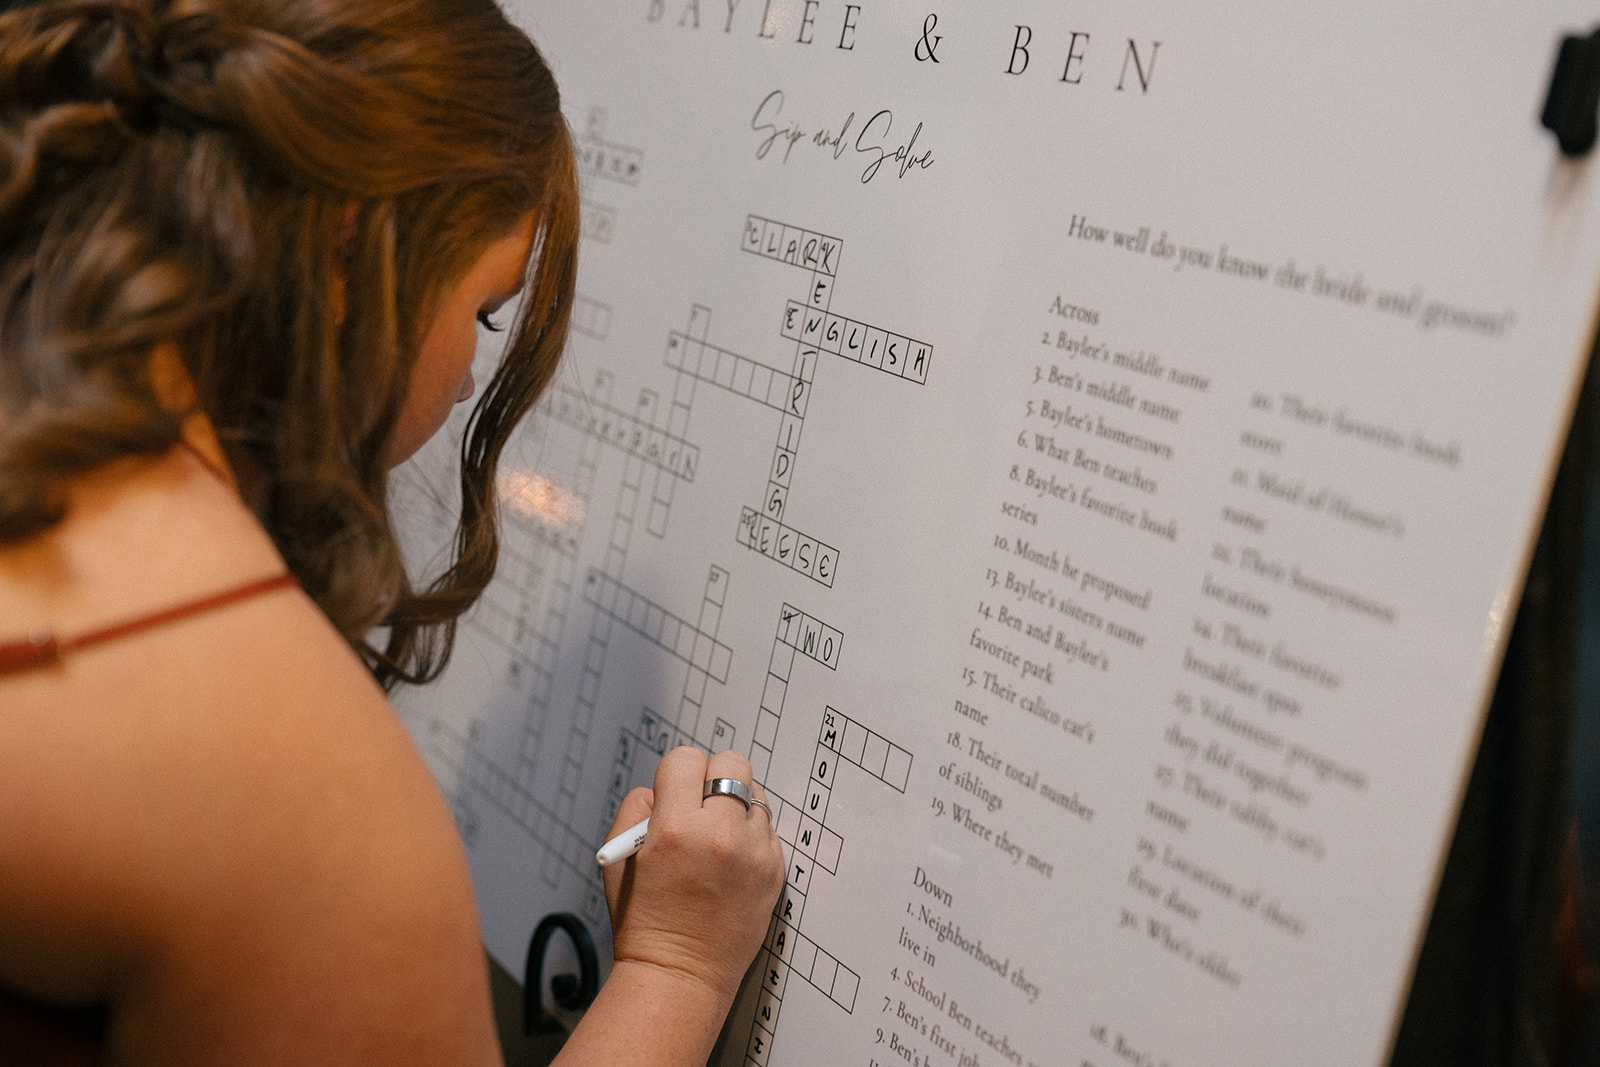 BAYLEE & BEN
Sip and Solve
CLARK
KENTRIDGE
ENGLISH
REESE
TWO
21
MOUNTRAINI
23
How well do you know the bride and groom?
Across
2. Baylee's middle name
3. Ben's middle name
5. Baylee's hometown
6. What Ben teaches
8. Baylee's favorite book
series
10. Month he proposed
13. Baylee's sisters name
14. Ben and Baylee's
favorite park
15. Their calico cat's
name
18. Their total number
of siblings
19. Where they met
20. Their favorite book
store
21. Maid of Honor's
name
22. Their honeymoon
location
24. Their favorite
breakfast spot
25. Volunteer program
they did together
27. Their tabby cat's
name
29. Location of their
first date
30. Who's older
Down
1. Neighborhood they
live in
4. School Ben teaches
7. Ben's first job
9. Ben's